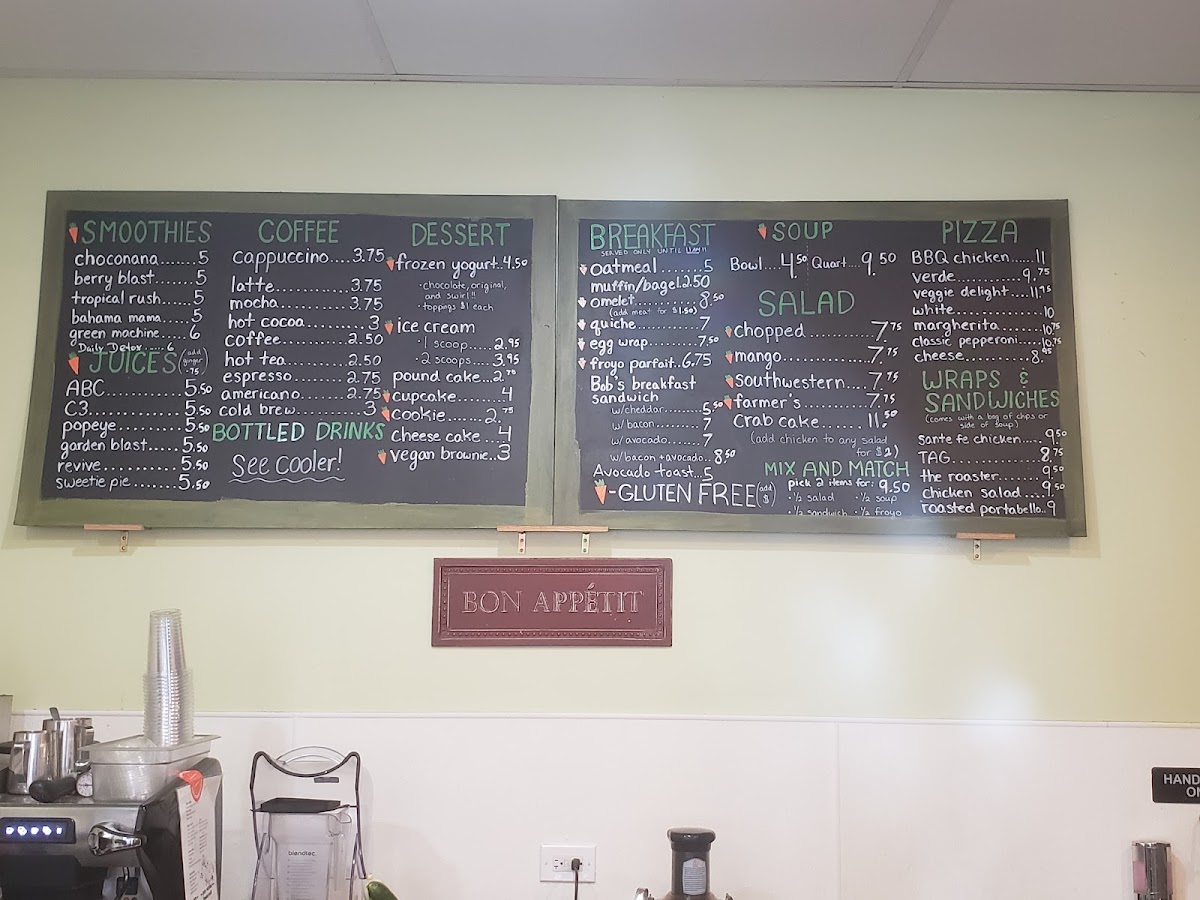 SMOOTHIES
choconana.....5
berry blast.....5
tropical rush.....5
bahama mama.....5
green machine....6
Daily Detox......6
JUICES (add ginger .75)
ABC..........5.50
C3............5.50
popeye........5.50
garden blast.....5.50
revive..........5.50
sweetie pie......5.50
COFFEE
cappuccino....3.75
latte...........3.75
mocha.........3.75
hot cocoa.......3
coffee.........2.50
hot tea.........2.50
espresso.......2.75
americano......2.75
cold brew.......3
BOTTLED DRINKS
See cooler!
DESSERT
frozen yogurt..4.50
· chocolate, original,
and swirl!!
· toppings $1 each
ice cream
· 1 scoop.....2.95
· 2 scoops....3.95
pound cake...2.75
cupcake......4
cookie.....2.75
cheese cake...4
vegan brownie..3
BREAKFAST
SERVED ONLY UNTIL 11AM!!
oatmeal.......5
muffin/bagel.2.50
omelet......8.50
(add meat for $1.50)
quiche.......7
egg wrap.....7.50
froyo parfait..6.75
Bob's breakfast
sandwich
w/cheddar.......5.50
w/bacon.........7
w/avocado.......7
w/bacon + avocado..8.50
Avocado toast...5
-GLUTEN FREE (add $)
SOUP
Bowl....4.50 Quart....9.50
SALAD
chopped.......7.75
mango.........7.75
southwestern....7.75
farmer's.......7.75
crab cake......11.50
(add chicken to any salad
for $2)
MIX AND MATCH
pick 2 items for: 9.50
· ½ salad · ½ soup
· ½ sandwich · ½ froyo
PIZZA
BBQ chicken....11
verde.........9.75
veggie delight....11.75
white..........10
margherita.......10.75
classic pepperoni....10.75
cheese..........8.95
WRAPS &
SANDWICHES
(comes with a bag of chips or
side of soup)
sante fe chicken....9.50
TAG..........8.75
the roaster.......9.50
chicken salad....9.50
roasted portabello..9
BON APPÉTIT
blendtec
HAND
ON